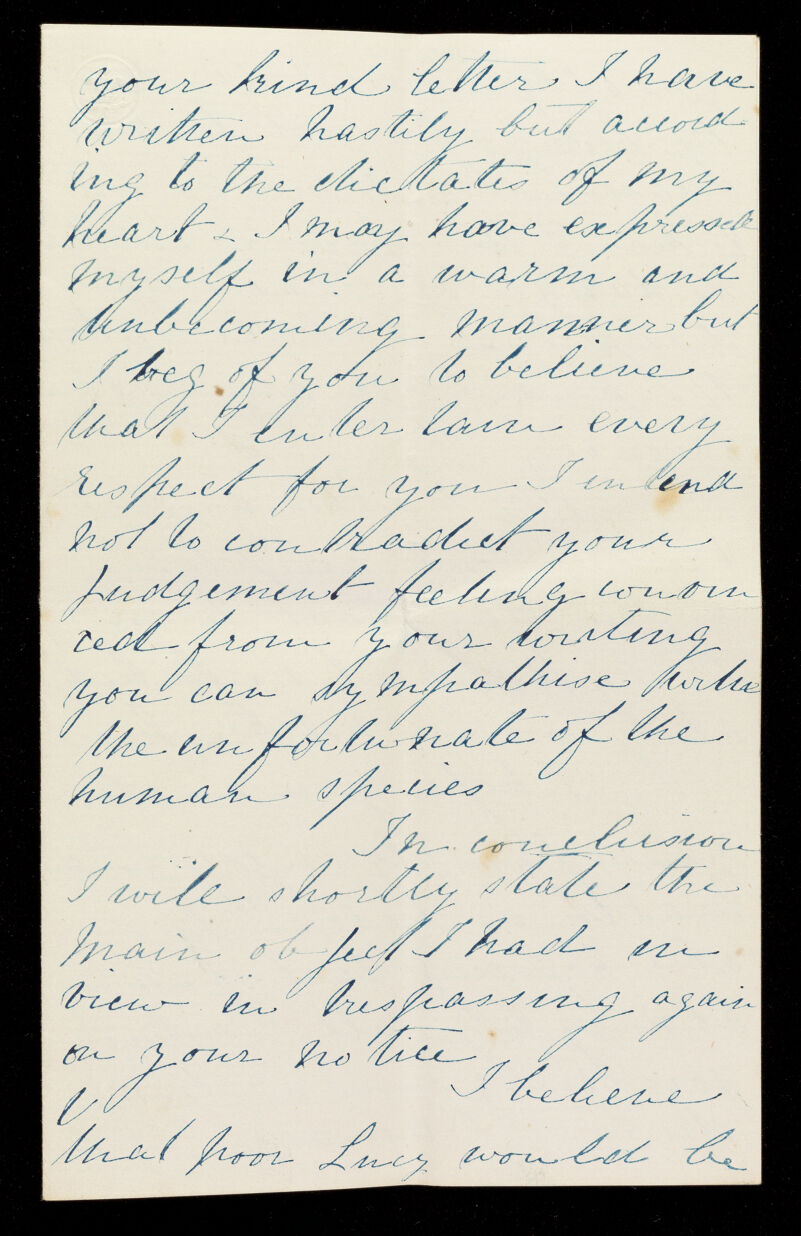 your kind letter I have
written hastily but accord
ing to the dictates of my
heart & I may have expressed
myself in a warm and
unbecoming manner but
I beg of you to believe
that I entertain every
respect for you I intend
not to contradict your
judgement feeling convin
ced from your writing
you can sympathise with
the unfortunate of the
human species
In conclusion
I will shortly state the
main object I had in
view in trespassing again
on your notice
I believe
that poor Lucy would be